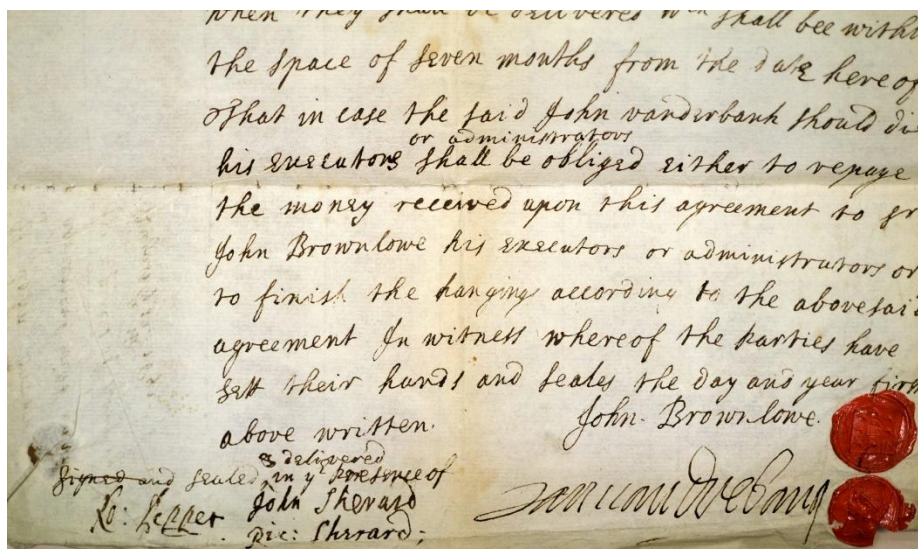 when they shall be delivered wch shall bee withi
the space of seven months from the date hereof
That in case the said John vanderbank should di
or administrators
his executors shall be obliged either to repaye
the money received upon this agreement to sr
John Brownlowe his executors or administrators or
to finish the hangings according to the abovesaid
agreement In witness whereof the parties have
sett their hands and seales the day and year first
above written.
John Brownlowe.
& delivered
Signed and sealed in ye presence of
John Sherard
Ric: Sherard;